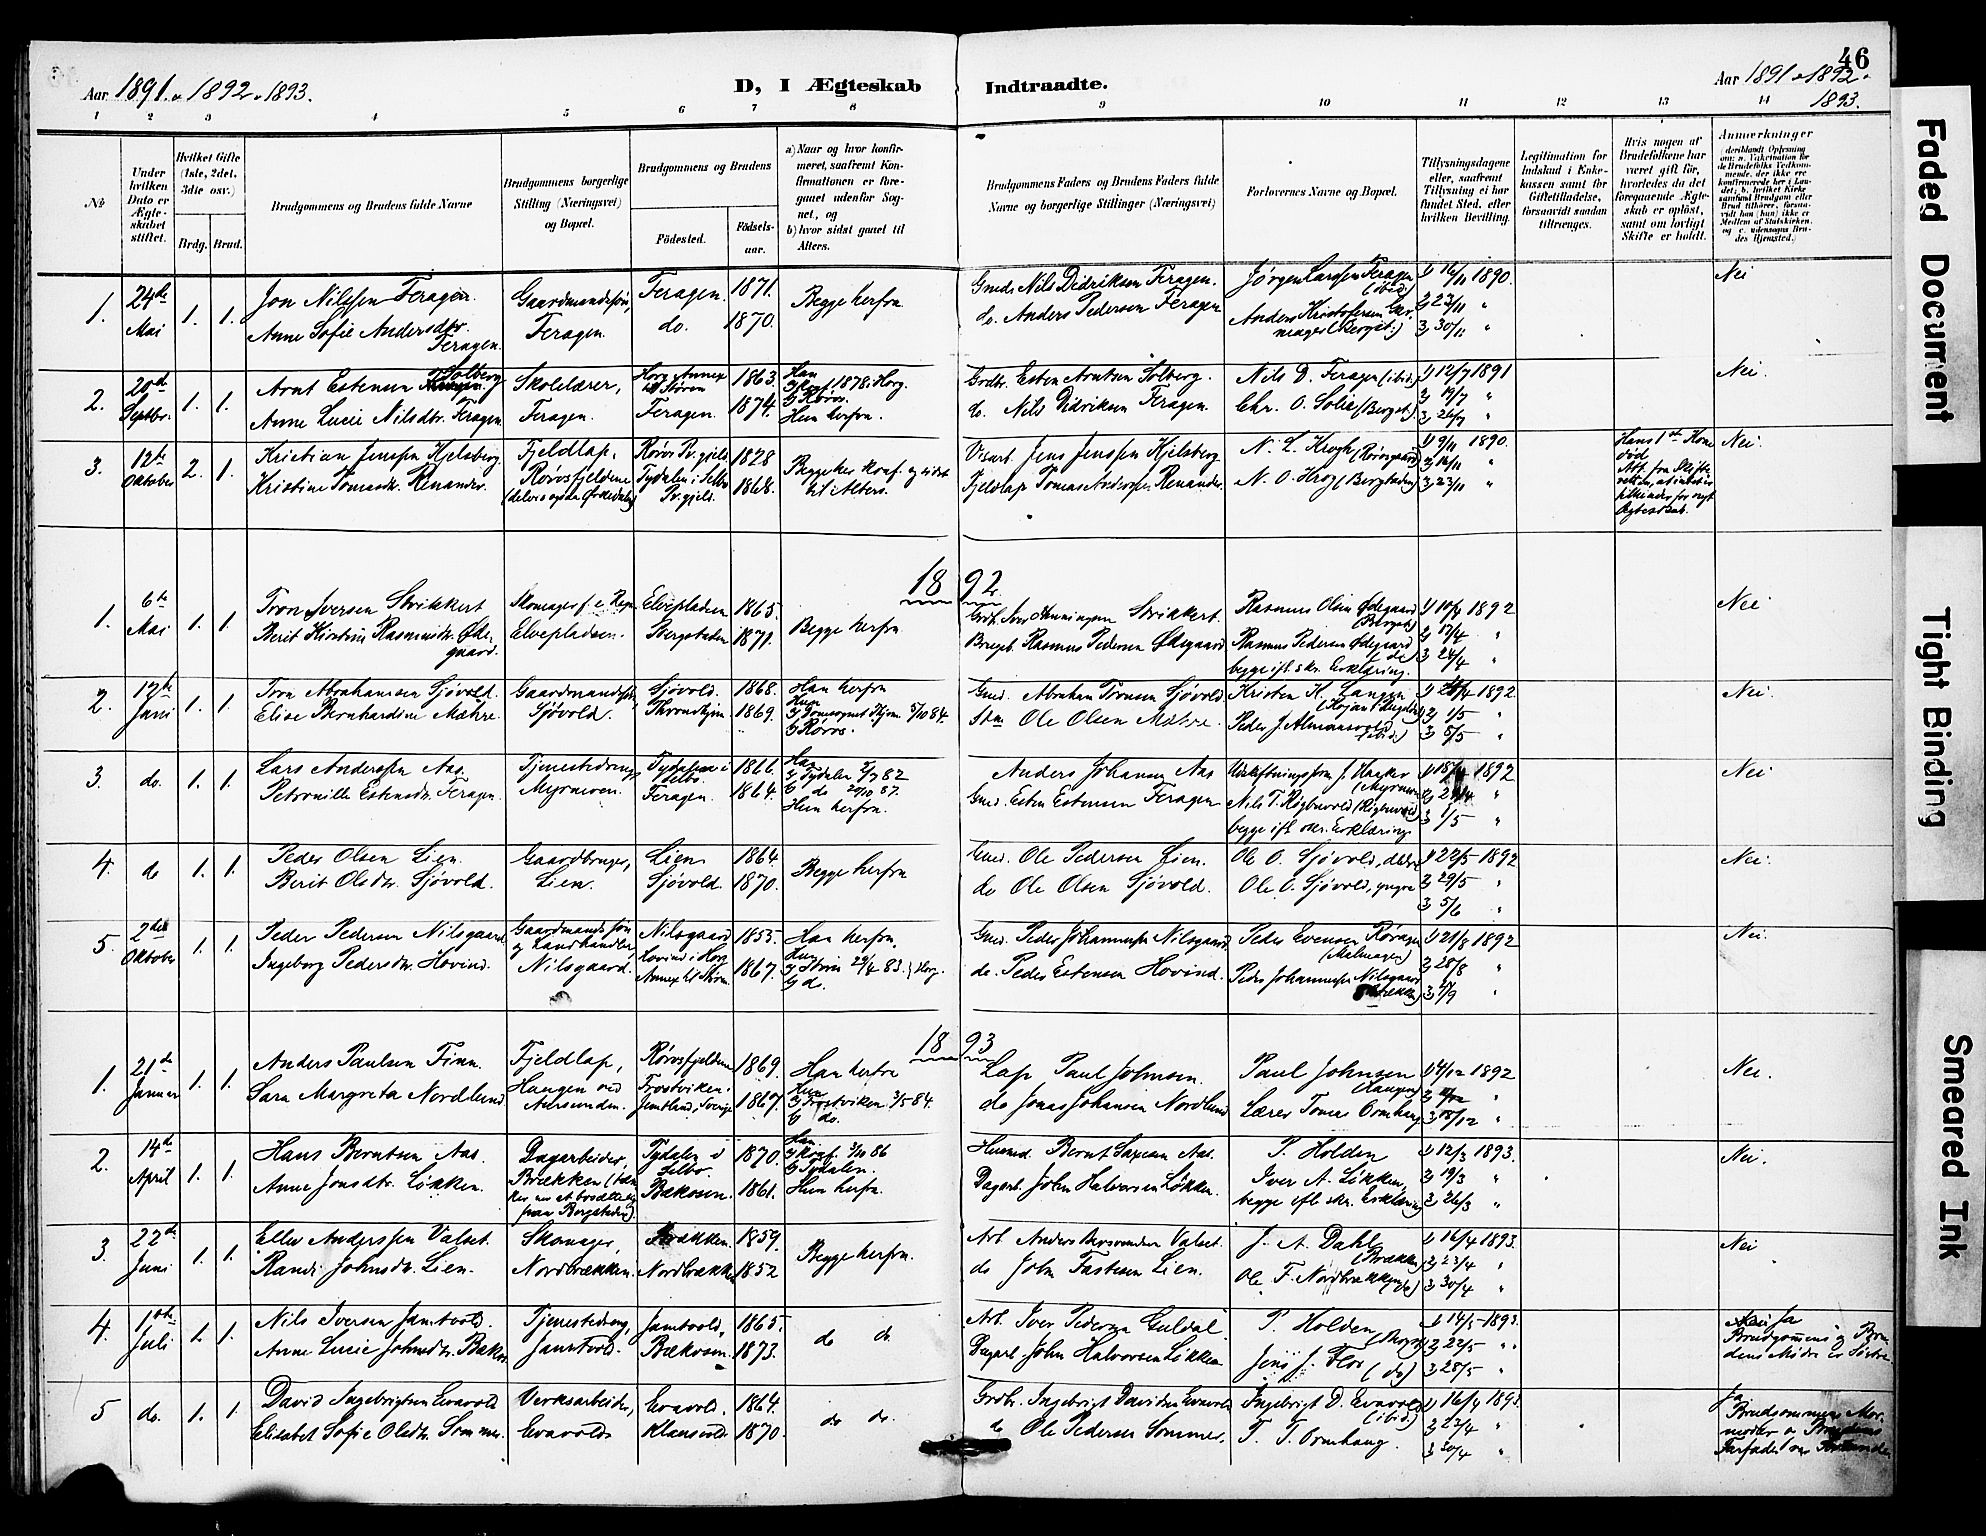 46
Aar 1891. & 1892 & 1893.
D, I Ægteskab Indtraadte.
Aar 1891 & 1892 &
1893.
1 2 3 4 5 6 7 8 9 10 11 12 13 14
№
Under hvilken Dato er Ægteskabet stiftet.
Hvilket Gifte (1ste, 2det, 3die osv.)
Brdg. Brud.
Brudgommens og Brudens fulde Navne
Brudgommens borgerlige Stilling (Næringsvei) og Bopæl.
Brudgommens og Brudens
Fødested.
Fødselsaar.
a) Naar og hvor konfirmeret, saafremt Konfirmationen er foregaaet udenfor Sognet, og
b) hvor sidst gaaet til Alters.
Brudgommens Faders og Brudens Faders fulde Navne og borgerlige Stillinger (Næringsvei)
Forlovernes Navne og Bopæl.
Tillysningsdagene eller, saafremt Tillysning ei har fundet Sted, efter hvilken Bevilling.
Legitimation for Indskud i Enkekassen samt for Giftetilladelse, forsaavidt saadan tiltrænges.
Hvis nogen af Brudefolkene har været gift før, hvorledes da det foregaaende Ægteskab er opløst, samt om lovligt Skifte er holdt.
Anmerkninger
(deriblandt Oplysning om: a. Vakcination for de Brudefolks Vedkommende, der ikke ere konfirmerede her i Landet; b. hvilket Kirkesamfund Brudgom eller Brud tilhører, forsaavidt han (hun) ikke er Medlem af Statskirken, og c. udensogns Brudes Hjemsted.)
1. 24de Mai 1. 1. Jon Nilssen Feragen. Gaardmandssøn, Feragen. 1871. Begge herfra Gmd. Nils Didriksen Feragen. Jørgen Larssen Feragen (ibid.) 1) 16/11 1890.
Anne Sofie Andersdtr. Feragen. Feragen. do. 1870. do. Anders Pedersen Feragen Anders Kristofersen (Bergst.) 2) 23/11 "
3) 30/11 "
Nei
2. 20de Septbr. 1. 1. Arnt Estensen Solberg Skolelærer, Horg Annex til Støren 1863. Han a) Konf. 1878 i Horg. b) Røros. Grdbr. Esten Arntsen Solberg. Nils D. Feragen (ibid.) 1) 12/7 1891
Anne Lucie Nilsdtr. Feragen Feragen. Feragen. 1874. Hun herfra. do. Nils Didriksen Feragen. Chr. O. Solie (Bergst.) 2) 19/7 "
3) 26/7 "
Nei.
3. 12te Oktober 2. 1. Kristian Jenssen Hjelsberg. Fjeldlap, Røros Pr.gjeld 1828 Begge her konf. og sidst til Alters. Jens Jenssen Hjelsberg. N. L. Krogh (Rørosgaard) 1) 9/11 1890.
Kristine Tomasdtr. Renander. Rørosfjeldene Tydalen i Selbo Pr.gjeld. 1868. Fjeldlap Tomas Anderssen Renander. N. O. (Bergstaden) 2) 16/11 "
3) 23/11 "
Hans 1ste Kone død Att. fra Skifteretten, at intet er til hinder for nyt Ægteskab.
Nei.
1892.
1. 6te Mai 1. 1. Tron Iversen Strikkert Skomager Elvepladsen 1865. Begge herfra Grdb. Iver Henningsen Strikkert. Rasmus Olsen Ødegaard (Bergst.) 1) 10/4 1892
Berit Kirstine Rasmusdtr. Ødegaard. Elvepladsen. Bergstaden 1871. Bergarb. Rasmus Pedersen Ødegaard. Rasmus Pedersen Ødegaard (do) 2) 17/4 "
begge ifl. skr. Erklæring. 3) 24/4 "
Nei
2. 12te Juni 1. 1. Tron Abrahamsen Sjøvold. Gaardmandssøn, Sjøvold. 1868. Han herfra Gmd. Abraham Tronsen Sjøvold. Kristen H. Langen 1) 24/4 1892
Elise Bernhardine Mæhre. Sjøvold. Throndhjem 1869. Hun b) Røros. Ole Olsen Mæhre. Peder J. Almaasvold (ibid.) 2) 1/5 "
3) 8/5 "
Nei.
3. do. 1. 1. Lars Anderssen Aas. Tjenestedreng Tydalen i Selbo. 1866. Han a) Tydalen 2/7 82 b) do 29/10 87. Anders Johansen Aas 1) 18/4 1892
Petronille Estensdtr. Feragen. Myrmoen. Feragen. 1864. Hun herfra. Gmd. Esten Estensen Feragen Nils T. Rugbuvold 2) 24/4 "
begge ifl. skr. Erklæring. 3) 1/5 "
Nei
4. do 1. 1. Peder Olsen Lien. Gaardbruger, Lien. 1864. Begge herfra Gmd. Ole Pedersen Lien. Ole O. Sjøvold, ældre 1) 22/5 1892
Berit Olsdtr. Sjøvold. Lien. Sjøvold. 1870. do Ole Olsen Sjøvold. Ole O. Sjøvold, yngre 2) 29/5 "
3) 5/6 "
Nei.
5. 2den Oktober 1. 1. Peder Pedersen Nilsgaard. Gaardmandssøn og Landhandler Nilsgaard 1853. Han herfra. Gmd. Peder Johannessen Nilsgaard. Peder Evensen Røragen (Malmagen) 1) 21/8 1892
Ingeborg Pedersdtr. Hovind. Nilsgaard. Hovind i Horg Annex til Støren. 1867. Hun a) Støren 29/4 83. Horg. b) d. do. Peder Estensen Hovind. Peder Johannessen Nilsgaard (Brækken) 2) 28/8 "
3) 4/9 "
Nei.
1893
1. 21de Januar 1. 1. Anders Paulsen Finn. Fjeldlap, Rørosfjeldene 1869. Han herfra Lap Paul Johnsen. Paul Johnsen (Haugen) 1) 4/12 1892
Sara Margreta Nordlund Haugen ved Aursunden. Frostviken, Jemtland, Sverige 1867. Hun a) Frostviken 3/5 84. b) do. do Jonas Johansen Nordlund Lærer Tomas Ormhaug 2) 11/12 "
3) 18/12 "
Nei.
2. 14de April 1. 1. Hans Berntsen Aas. Dagarbeider, Tydalen i Selbo. 1870. Han a) Konf. 3/10 86 b) Tydalen. Husmd. Bernt Saxesen Aas. P. Holden 1) 12/3 1893.
Anne Jonsdtr. Løkken. Brækken (tænker nu at bosætte sig paa Bergstaden). Bækosen. 1861. Hun herfra. Dagarb. John Halvorsen Løkken. Iver A. Løkken, 2) 19/3 "
begge ifl. skr. Erklæring 3) 26/3 "
Nei.
3. 22de Juni 1. 1. Ellev Anderssen Valset. Skomager, Brækken. 1859. Begge herfra. Arb. Anders Valset. J. A. Dahl (Brækken) 1) 16/4 1893.
Randi Johnsdtr. Lien. Nordbrækken. Nordbrækken 1852 do John Fastesen Lien. Ole F. Nordbrækken (do) 2) 23/4 "
3) 30/4 "
Nei
4. 1ste Juli 1. 1. Nils Iversen Jamtvold. Tjenestedreng, Jamtvold, 1865. do do. Arb. Iver Pedersen Guldal P. Holden (Bergst.) 1) 14/5 1893.
Anne Lucie Johnsdtr. Bækos. Jamtvold. Bækosen. 1873. Dagarb. John Halvorsen Løkken Jens J. Flor (do) 2) 22/5 "
3) 28/5 "
Ja Brudgommens og Brudens Mødre er Søstre
5 do. 1. 1. David Ingebrigtsen Evavold Verksarbeider, Evavold. 1864. do do. Grdbr. Ingebrigt Davidsen Evavold Ingebrigt D. Evavold (ibid.) 1) 16/4 1893.
Elisabet Sofie Olsdtr. Sommer. Evavold. Klausvold. 1870. do Ole Pedersen Sommer. T. T. Ormhaug. 2) 23/4 "
3) 30/4 "
Ja Brudgommens Mormoder og Brudens Farfader var Søskende
Faded Document
Tight Binding
Smeared Ink